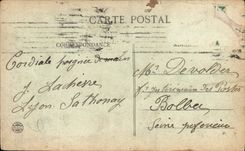 CARTE POSTAL
CORRESPONDANCE
Cordiale poignée de main
J. Lacherre
Lyon-Sathonay
Mr Devolder
des Postes
Bolbec
Seine inférieure